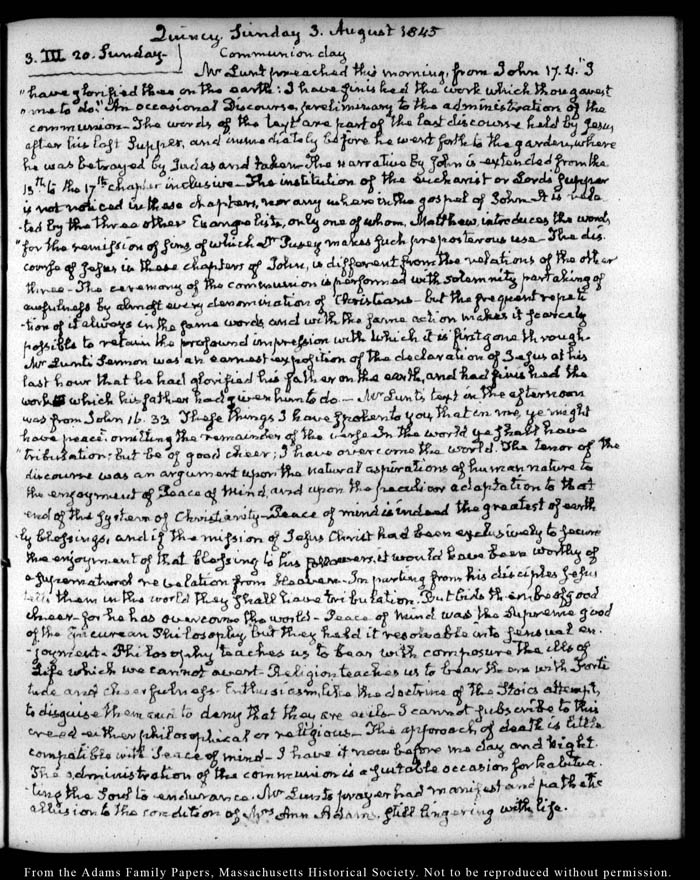 Quincy Sunday 3. August 1845
3. III 20. Sunday- Communion day
Mr Lunt preached this morning, from John 17. 4. "I
"have glorified thee on the earth: I have finished the work which thou gavest
"me to do." An occasional Discourse, preliminary to the administration of the
communion- The words of the text are part of the last discourse held by Jesus
after his last Supper, and immediately before he went forth to the garden, where
he was betrayed by Judas and taken- The narrative by John is extended from the
13th to the 17th chapter inclusive- The institution of the eucharist or Lords Supper
is not noticed in these chapters, nor any where in the gospel of John- It is rela-
ted by the three other Evangelists, only one of whom, Matthew, introduces the words
"for the remission of sins, of which Dr Pusey makes such preposterous use- The dis-
course of Jesus in these chapters of John, is different from the relations of the other
three- The ceremony of the communion is performed with solemnity partaking of
awfulness by almost every denomination of Christians- but the frequent repeti-
tion of it always in the same words and with the same action makes it scarcely
possible to retain the profound impression with which it is first gone through-
Mr Lunt's Sermon was an earnest exposition of the declaration of Jesus at his
last hour that he had glorified his father on the earth, and had finished the
work which his father had given him to do.- Mr Lunt's text in the afternoon
was from John 16. 33 These things I have spoken to you, that in me, ye might
have peace. omitting the remainder of the verse In the world ye shall have
"tribulation: but be of good cheer; I have overcome the world. The tenor of the
discourse was an argument upon the natural aspirations of human nature to
the enjoyment of Peace of mind, and upon the peculiar adaptation to that
end of the System of Christianity- Peace of mind is indeed the greatest of earth-
ly blessings, and if the mission of Jesus Christ had been exclusively to secure
the enjoyment of that blessing to his followers, it would have been worthy of
a supernatural revelation from Heaven- In parting from his disciples Jesus
tells them in the world they shall have tribulation. But bids them be of good
cheer- for he has overcome the world- Peace of mind was the Supreme good
of the Epicurean Philosophy, but they held it resolvable into sensual en-
joyment- Philosophy teaches us to bear with composure the ills of
Life which we cannot avert- Religion teaches us to bear them with Forti-
tude and cheerfulness- Enthusiasm, like the doctrine of the Stoics attempts
to disguise them and to deny that they are evils- I cannot subscribe to this
creed either philosophical or religious- The approach of death is little
compatible with Peace of mind- I have it now before me day and Night.
The administration of the communion is a suitable occasion for habitua-
ting the Soul to endurance. Mr Lunt's prayer had manifest and pathetic
allusion to the condition of Mrs Ann Adams, still lingering with life.
From the Adams Family Papers, Massachusetts Historical Society. Not to be reproduced without permission.